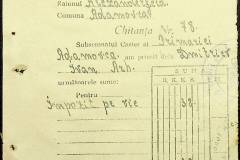 Raionul Alexandrfeld
Comuna Adamovca
Chitanța Nr. 78.
Subsemnatul Casier al Primăriei
Adamovca am primit dela Dmitriev
Ivan
următoarele sume:
SUMA
Pentru
Impozit pe vie 38